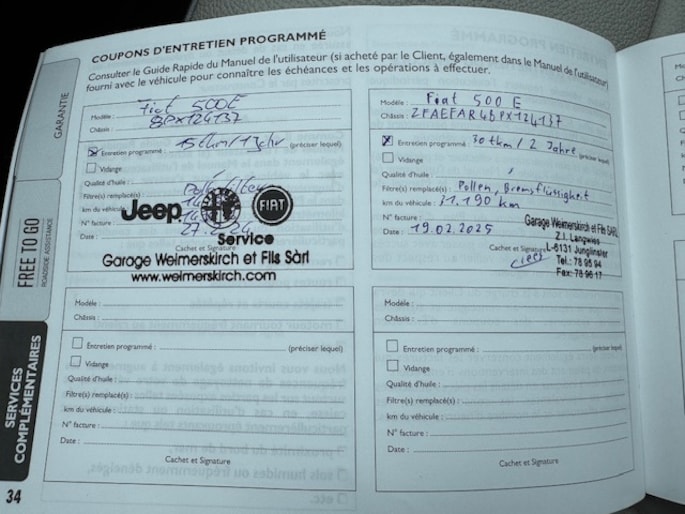 COUPONS D'ENTRETIEN PROGRAMMÉ
Consulter le Guide Rapide du Manuel de l'utilisateur (si acheté par le Client, également dans le Manuel de l'utilisateur)
fourni avec le véhicule pour connaître les échéances et les opérations à effectuer.
GARANTIE
FREE TO GO
ROADSIDE ASSISTANCE
SERVICES
COMPLÉMENTAIRES
Modèle : Fiat 500E
Châssis : BPX124137
Entretien programmé : 15tkm/1Jahr (préciser lequel)
Vidange
Qualité d'huile :
Filtre(s) remplacé(s) :
km du véhicule :
N° facture :
Date :
Jeep FIAT
Service
Cachet et Signature
Garage Weimerskirch et Fils Sàrl
www.weimerskirch.com
Modèle : Fiat 500 E
Châssis : ZFAEFAR4bPX124137
Entretien programmé : 30tkm/2 Jahre (préciser lequel)
Vidange
Qualité d'huile :
Filtre(s) remplacé(s) : Pollen, Bremsflüssigkeit
km du véhicule : 31.190 km
N° facture :
Date : 19.02.2025
Cachet et Signature
Garage Weimerskirch et Fils SARL
Z.I. Langwies
L-6131 Junglinster
Tel.: 78 95 94
Fax: 78 96 17
Modèle :
Châssis :
Entretien programmé : (préciser lequel)
Vidange
Qualité d'huile :
Filtre(s) remplacé(s) :
km du véhicule :
N° facture :
Date :
Cachet et Signature
Modèle :
Châssis :
Entretien programmé : (préciser lequel)
Vidange
Qualité d'huile :
Filtre(s) remplacé(s) :
km du véhicule :
N° facture :
Date :
Cachet et Signature
34